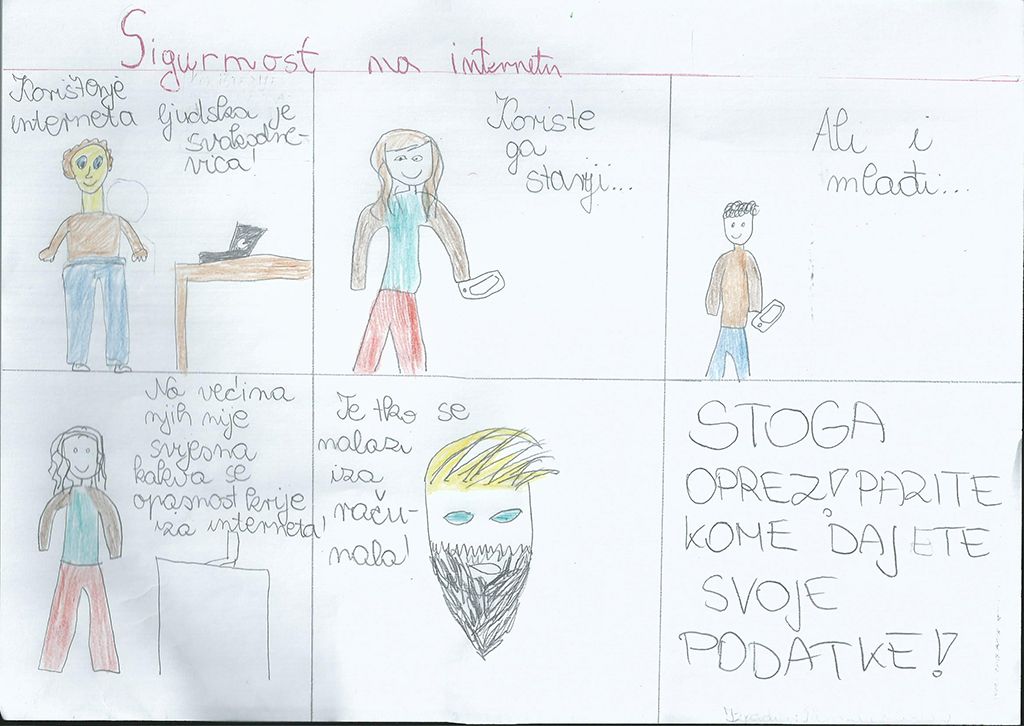 Sigurnost na internetu
Korištenje
interneta
ljudska je
svakodne-
vica!
Koriste
ga
stariji...
Ali i
mlađi...
No većina
njih nije
svjesna
kakva se
opasnost krije
iza interneta!
Te tko se
nalazi
iza
raču-
nala!
STOGA
OPREZ! PAZITE
KOME DAJETE
SVOJE
PODATKE!